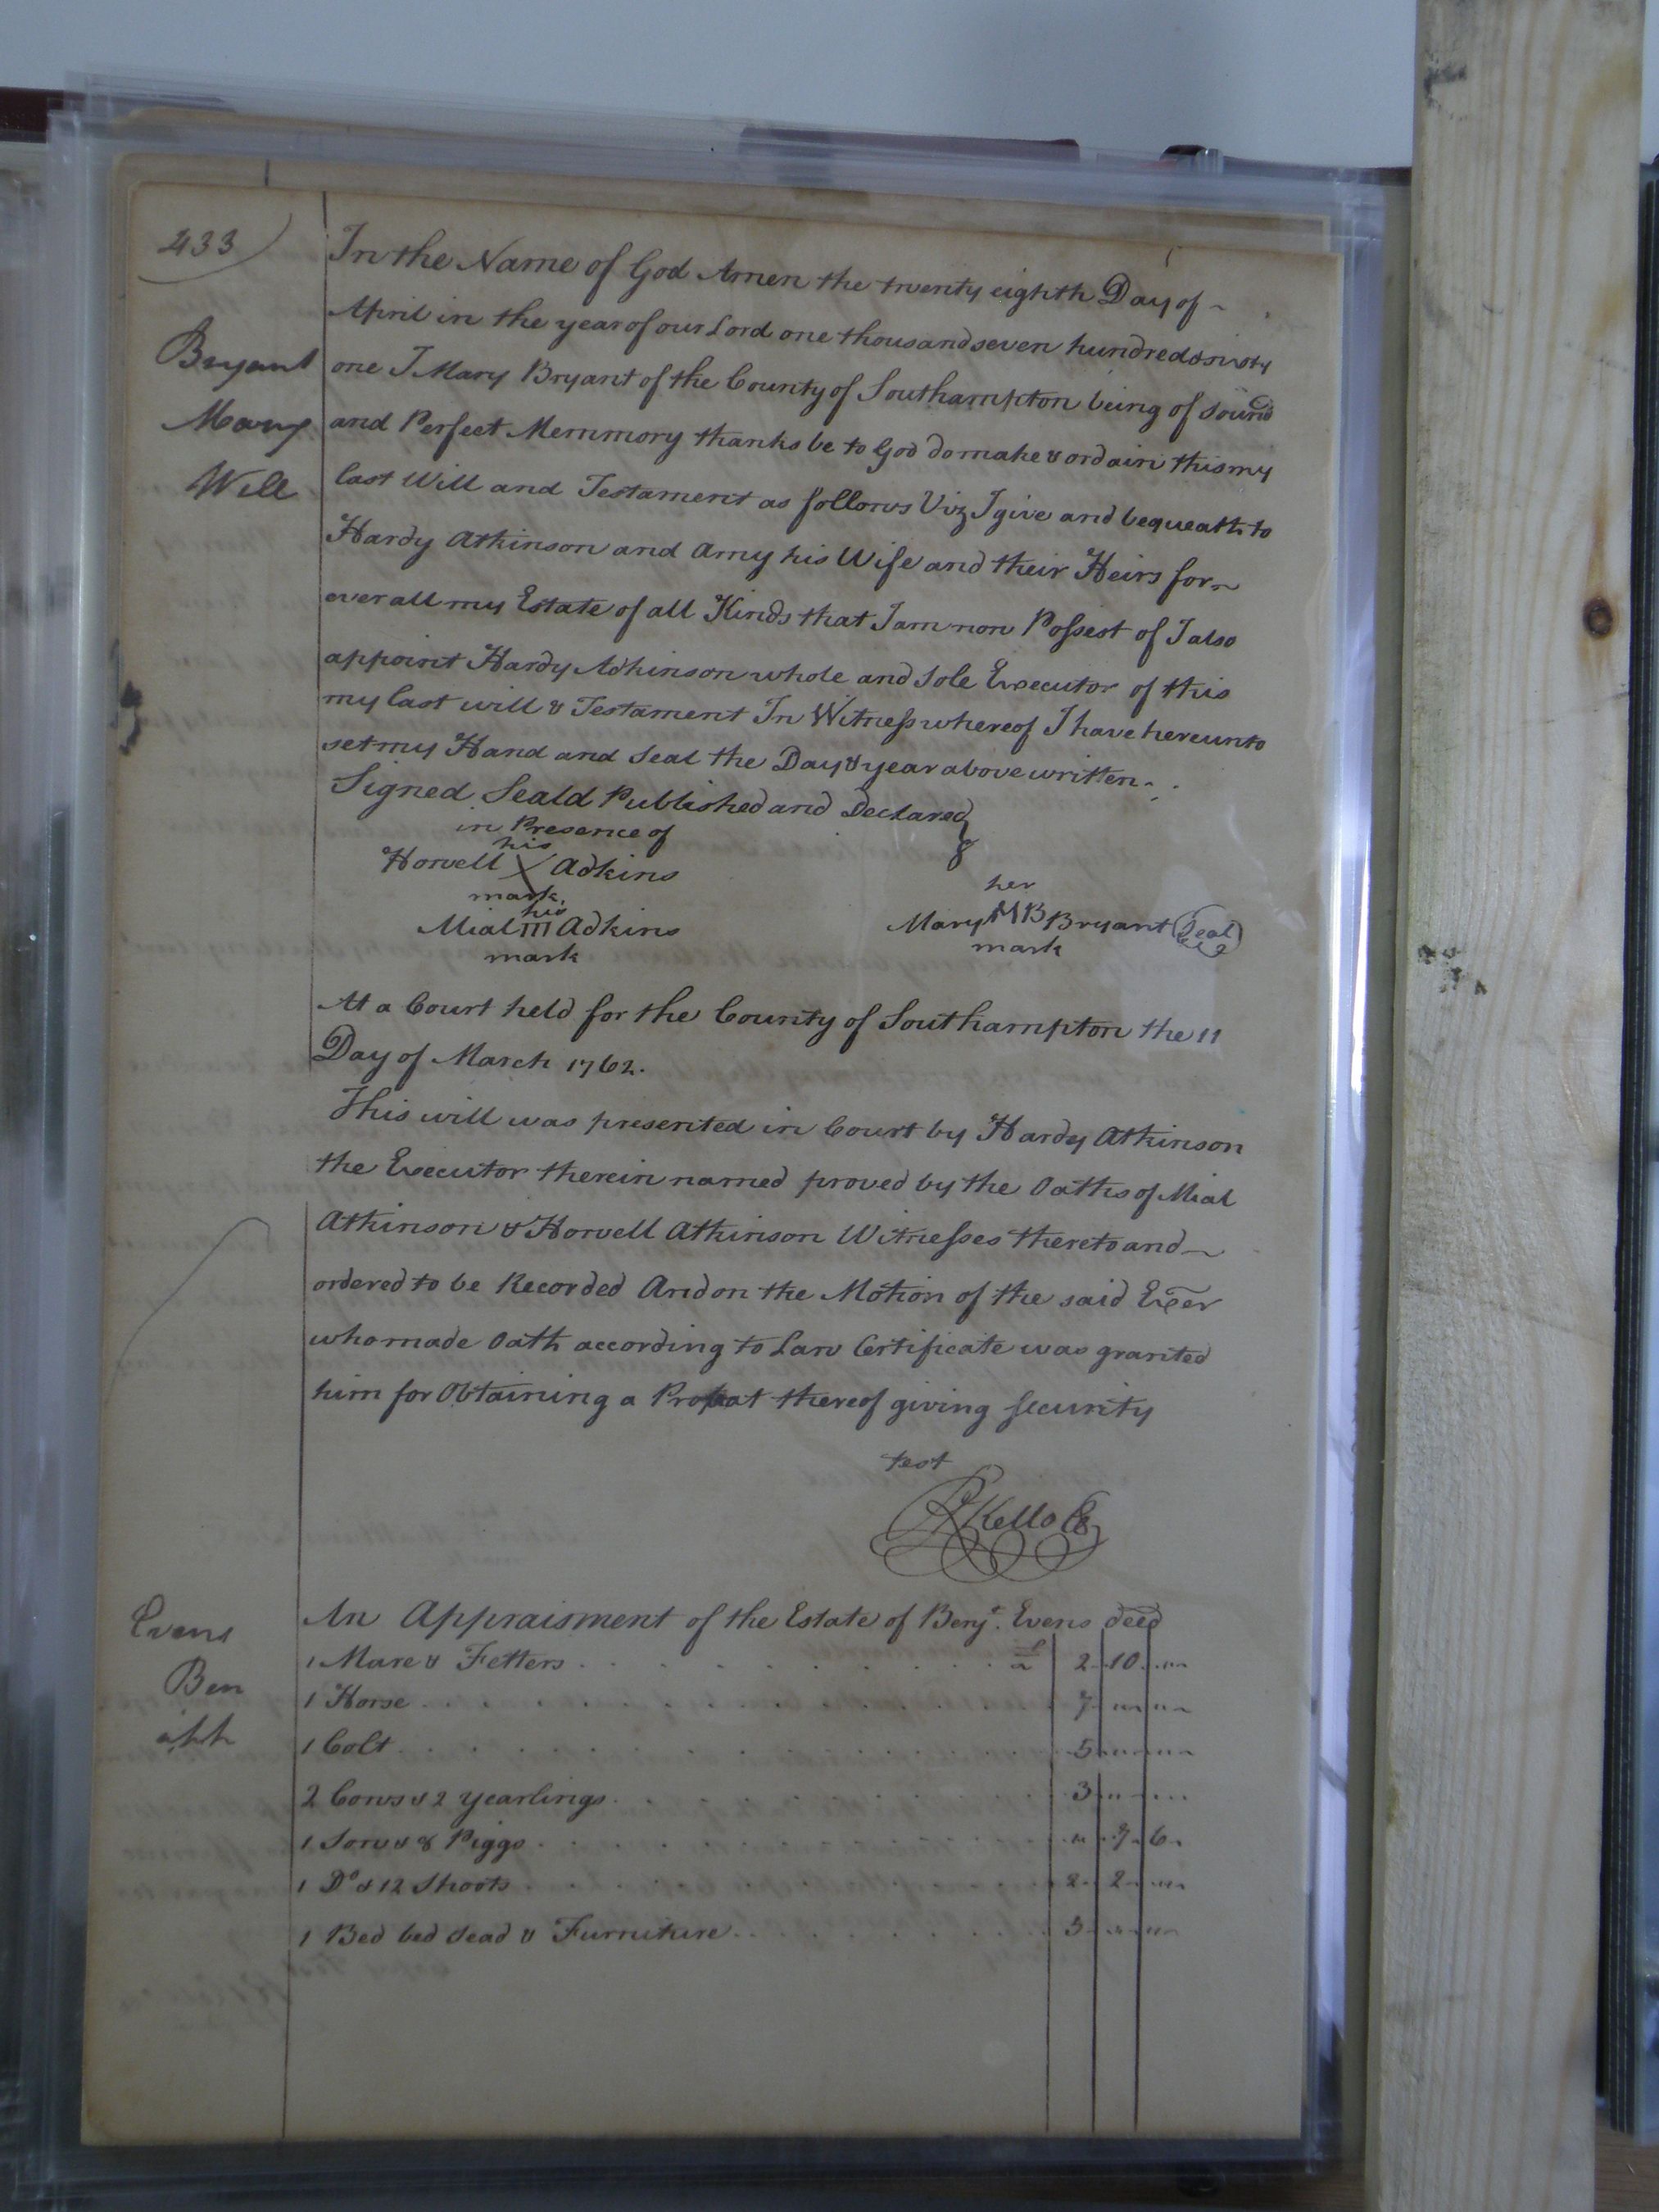 433
Bryant
Mary
Will
In the Name of God Amen the twenty eighth Day of
April in the year of our Lord one thousand seven hundred & sixty
one I Mary Bryant of the County of Southampton being of sound
and Perfect Memmory thanks be to God do make & ordain this my
last Will and Testament as follows Viz I give and bequeath to
Hardy Atkinson and Amy his Wife and their Heirs for
ever all my Estate of all Kinds that I am now Possest of I also
appoint Hardy Adkinson whole and sole Executor of this
my last will & Testament In Witness whereof I have hereunto
set my Hand and Seal the Day & year above written
Signed Seald Published and Declared
in Presence of
his
Howell X Adkins
mark
his
Mial m Adkins
mark
her
Mary MB Bryant Seal
mark
At a Court held for the County of Southampton the 11
Day of March 1762.
This will was presented in Court by Hardy Atkinson
the Executor therein named proved by the Oaths of Mial
Atkinson & Howell Atkinson Witnesses thereto and
ordered to be Recorded And on the Motion of the said Exer
who made Oath according to Law Certificate was granted
him for Obtaining a Probat thereof giving security
test
R Kello
Evans
Ben
An Appraisment of the Estate of Benj. Evens decd
1 Mare & Fetters 2 10
1 Horse 7
1 Colt 5
2 Cows & 2 yearlings 3
1 Sow & 8 Piggs 7 6
1 Do & 12 Shoots 2 2
1 Bed bed stead & Furniture 3